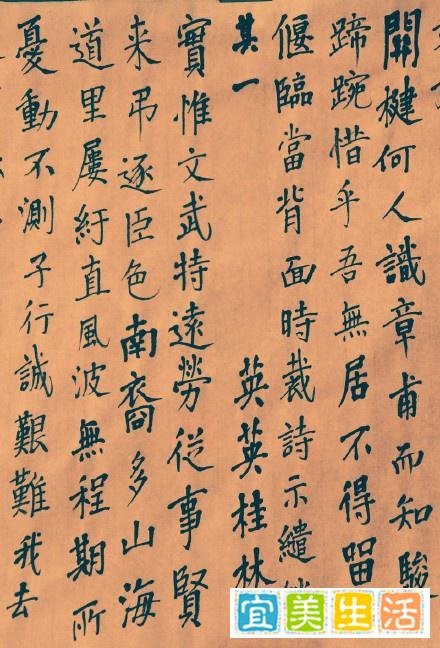 開楗何人識章甫而知駿
蹄踠惜乎吾無居不得畱
偃臨當背面時裁詩示繾
其一 英英桂林
實惟文武特遠勞從事賢
来弔逐臣色南裔多山海
道里屢紆直風波無程期所
憂動不測子行誠艱難我去
宜美生活